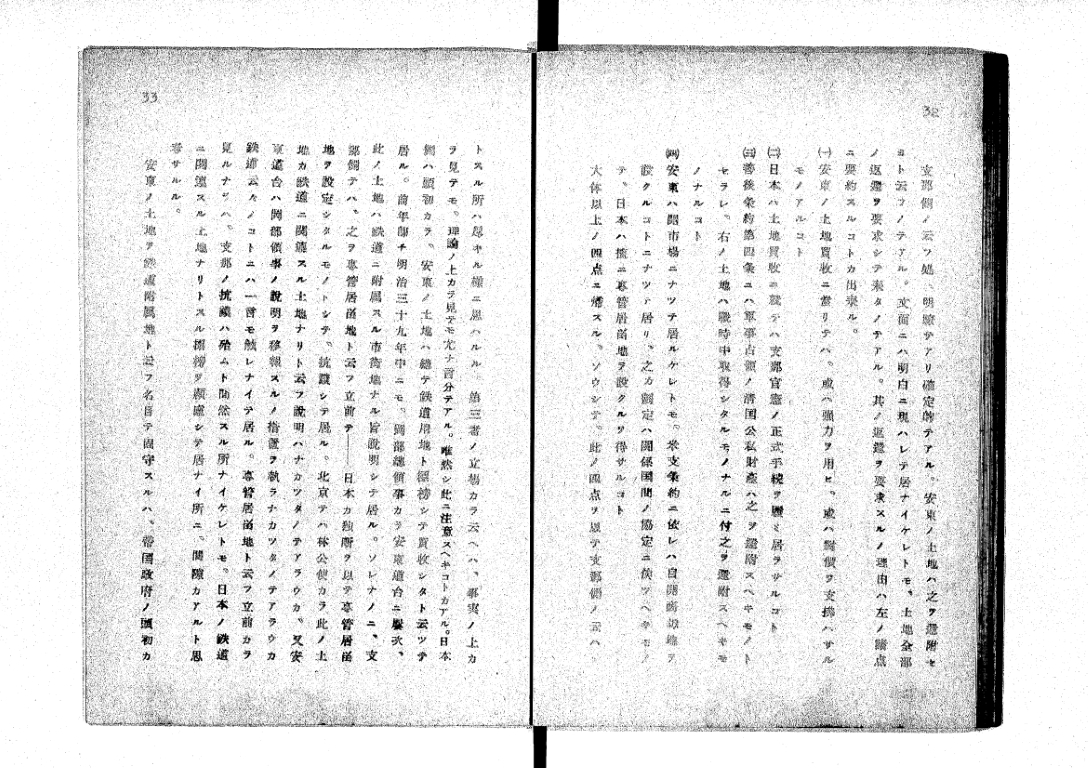 32
支那側ノ云フ処、明瞭テアリ確定的テアル。安東ノ土地ハ之ヲ還附セ
ヨト云フノテアル。文面ニハ明白ニ現ハレテ居ナイケレトモ、土地全部
ノ返還ヲ要求シテ来タノテアル。其ノ返還ヲ要求スルノ理由ハ左ノ諸点
ニ要約スルコトカ出来ル。
㈠安東ノ土地買收ニ当リテハ、或ハ強力ヲ用ヒ、或ハ対価ヲ支拂ハサル
モノアルコト
㈡日本ハ土地買收ニ就テハ支那官憲ノ正式手続ヲ履ミ居ラサルコト
㈢善後条約第四条ニハ軍事占領ノ清国公私財産ハ之ヲ還附スヘキモノト
セラレ、右ノ土地ハ戰時中取得シタルモノナルニ付之ヲ還附スヘキモ
ノナルコト
㈣安東ハ開市場ニナツテ居ルケレトモ、米支条約ニ依レハ自開商埠地ヲ
設クルコトニナツテ居リ、之カ劃定ハ関係国間ノ協定ニ俟ツヘキモノ
テ、日本ハ擅ニ専管居留地ヲ設クルヲ得サルコト
大体以上ノ四点ニ帰スル。ソウシテ、此ノ四点ヲ以テ支那側ノ云ハン
33
トスル所ハ尽キル様ニ思ハルル。第三者ノ立場カラ云ヘハ、事実ノ上カ
ラ見テモ、理論ノ上カラ見テモ尤ナ言分テアル。唯然シ此ニ注意スヘキコトカアル。日本
側ハ頭初カラ、安東ノ土地ハ総テ鉄道用地ト標榜シテ買收シタト云ツテ
居ル。前年即チ明治三十九年中ニモ、岡部総領事カラ安東道台ニ屢次、
此ノ土地ハ鉄道ニ附属スル市街地ナル旨説明シテ居ル。ソレナノニ、支
那側テハ、之ヲ専管居留地ト云フ立前テ——日本カ独断ヲ以テ専管居留
地ヲ設定シタルモノトシテ、抗議シテ居ル。北京テハ林公使カラ此ノ土
地カ鉄道ニ関聯スル土地ナリト云フ説明ハナカツタノテアラウカ。又安
東道台ハ岡部領事ノ説明ヲ移報スルノ措置ヲ執ラナカツタノテアラウカ
鉄道云々ノコトニハ一言モ触レナイテ居ル。専管居留地ト云フ立前カラ
見ルナラハ、支那ノ抗議ハ殆ムト間然スル所ナイケレトモ、日本ノ鉄道
ニ関聯スル土地ナリトスル標榜ヲ顧慮シテ居ナイ所ニ、間隙カアルト思
考サルル。
安東ノ土地ヲ鉄道附属地ト云フ名目テ固守スルハ、帝国政府ノ頭初カ